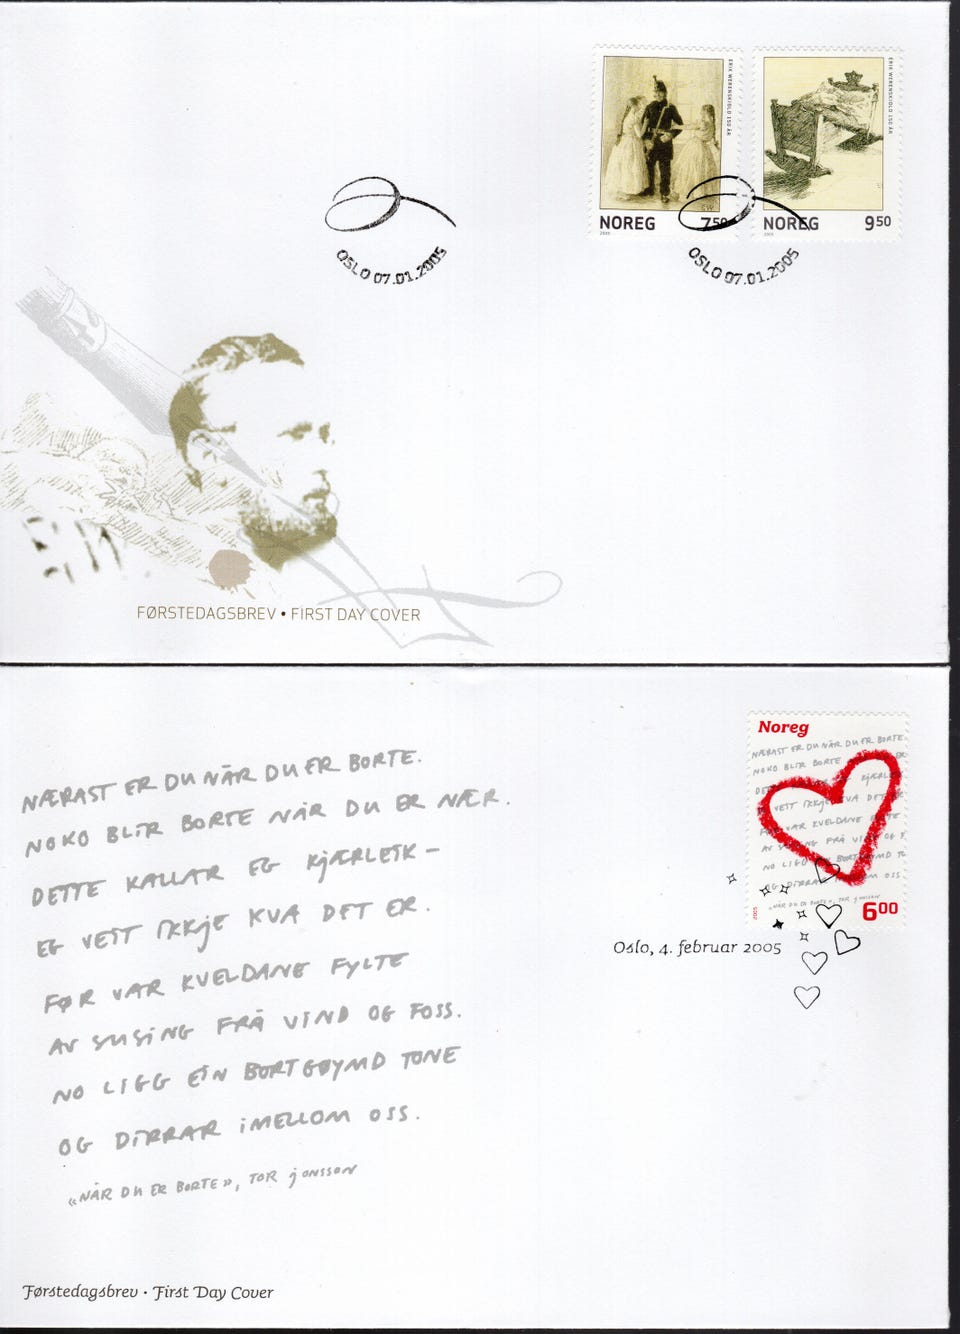 ERIK WERENSKIOLD 150 ÅR
NOREG 7 50
2005
ERIK WERENSKIOLD 150 ÅR
NOREG 9 50
2005
OSLO 07.01.2005
OSLO 07.01.2005
E.W.
FØRSTEDAGSBREV • FIRST DAY COVER
NÆRAST ER DU NÅR DU ER BORTE.
NOKO BLIR BORTE NÅR DU ER NÆR.
DETTE KALLAR EG KJÆRLEIK –
EG VEIT IKKJE KVA DET ER.
FØR VAR KVELDANE FYLTE
AV SUSING FRÅ VIND OG FOSS.
NO LIGG EIN BORTGØYMD TONE
OG DIRRAR IMELLOM OSS.
«NÅR DU ER BORTE», TOR JONSSON
Noreg
NÆRAST ER DU NÅR DU ER BORTE
NOKO BLIR BORTE
KJÆRLEIK
VEIT IKKJE KVA DET
VAR KVELDANE FYLTE
AV SUSING FRÅ VIND OG F
NO LIGG EIN BORTGØYMD T
OG DIRRAR IMELLOM OSS
«NÅR DU ER BORTE», TOR JONSSON
2005
6 00
Oslo, 4. februar 2005
Førstedagsbrev · First Day Cover